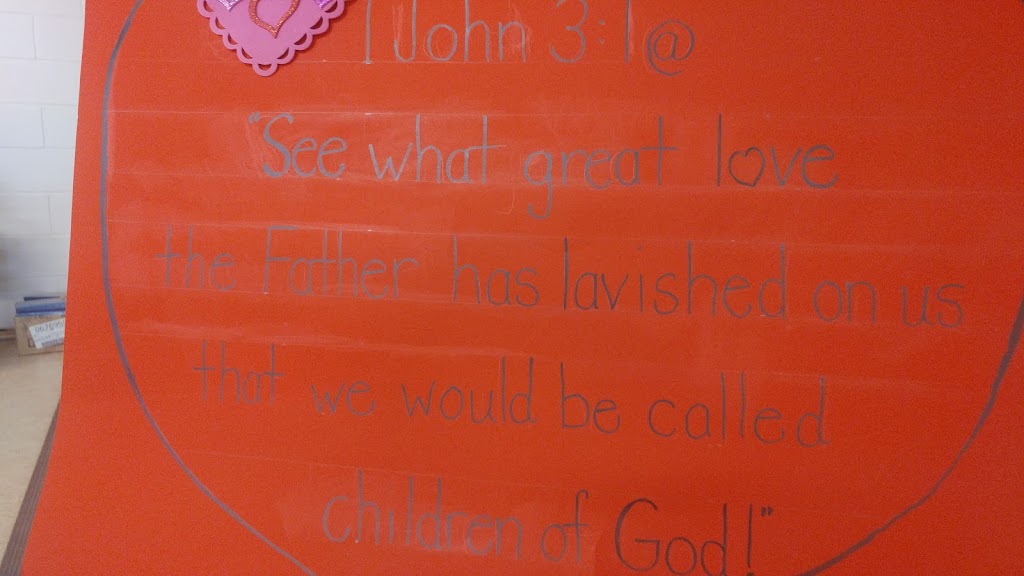 1 John 3:1@
"See what great love
the Father has lavished on us
that we would be called
children of God!"